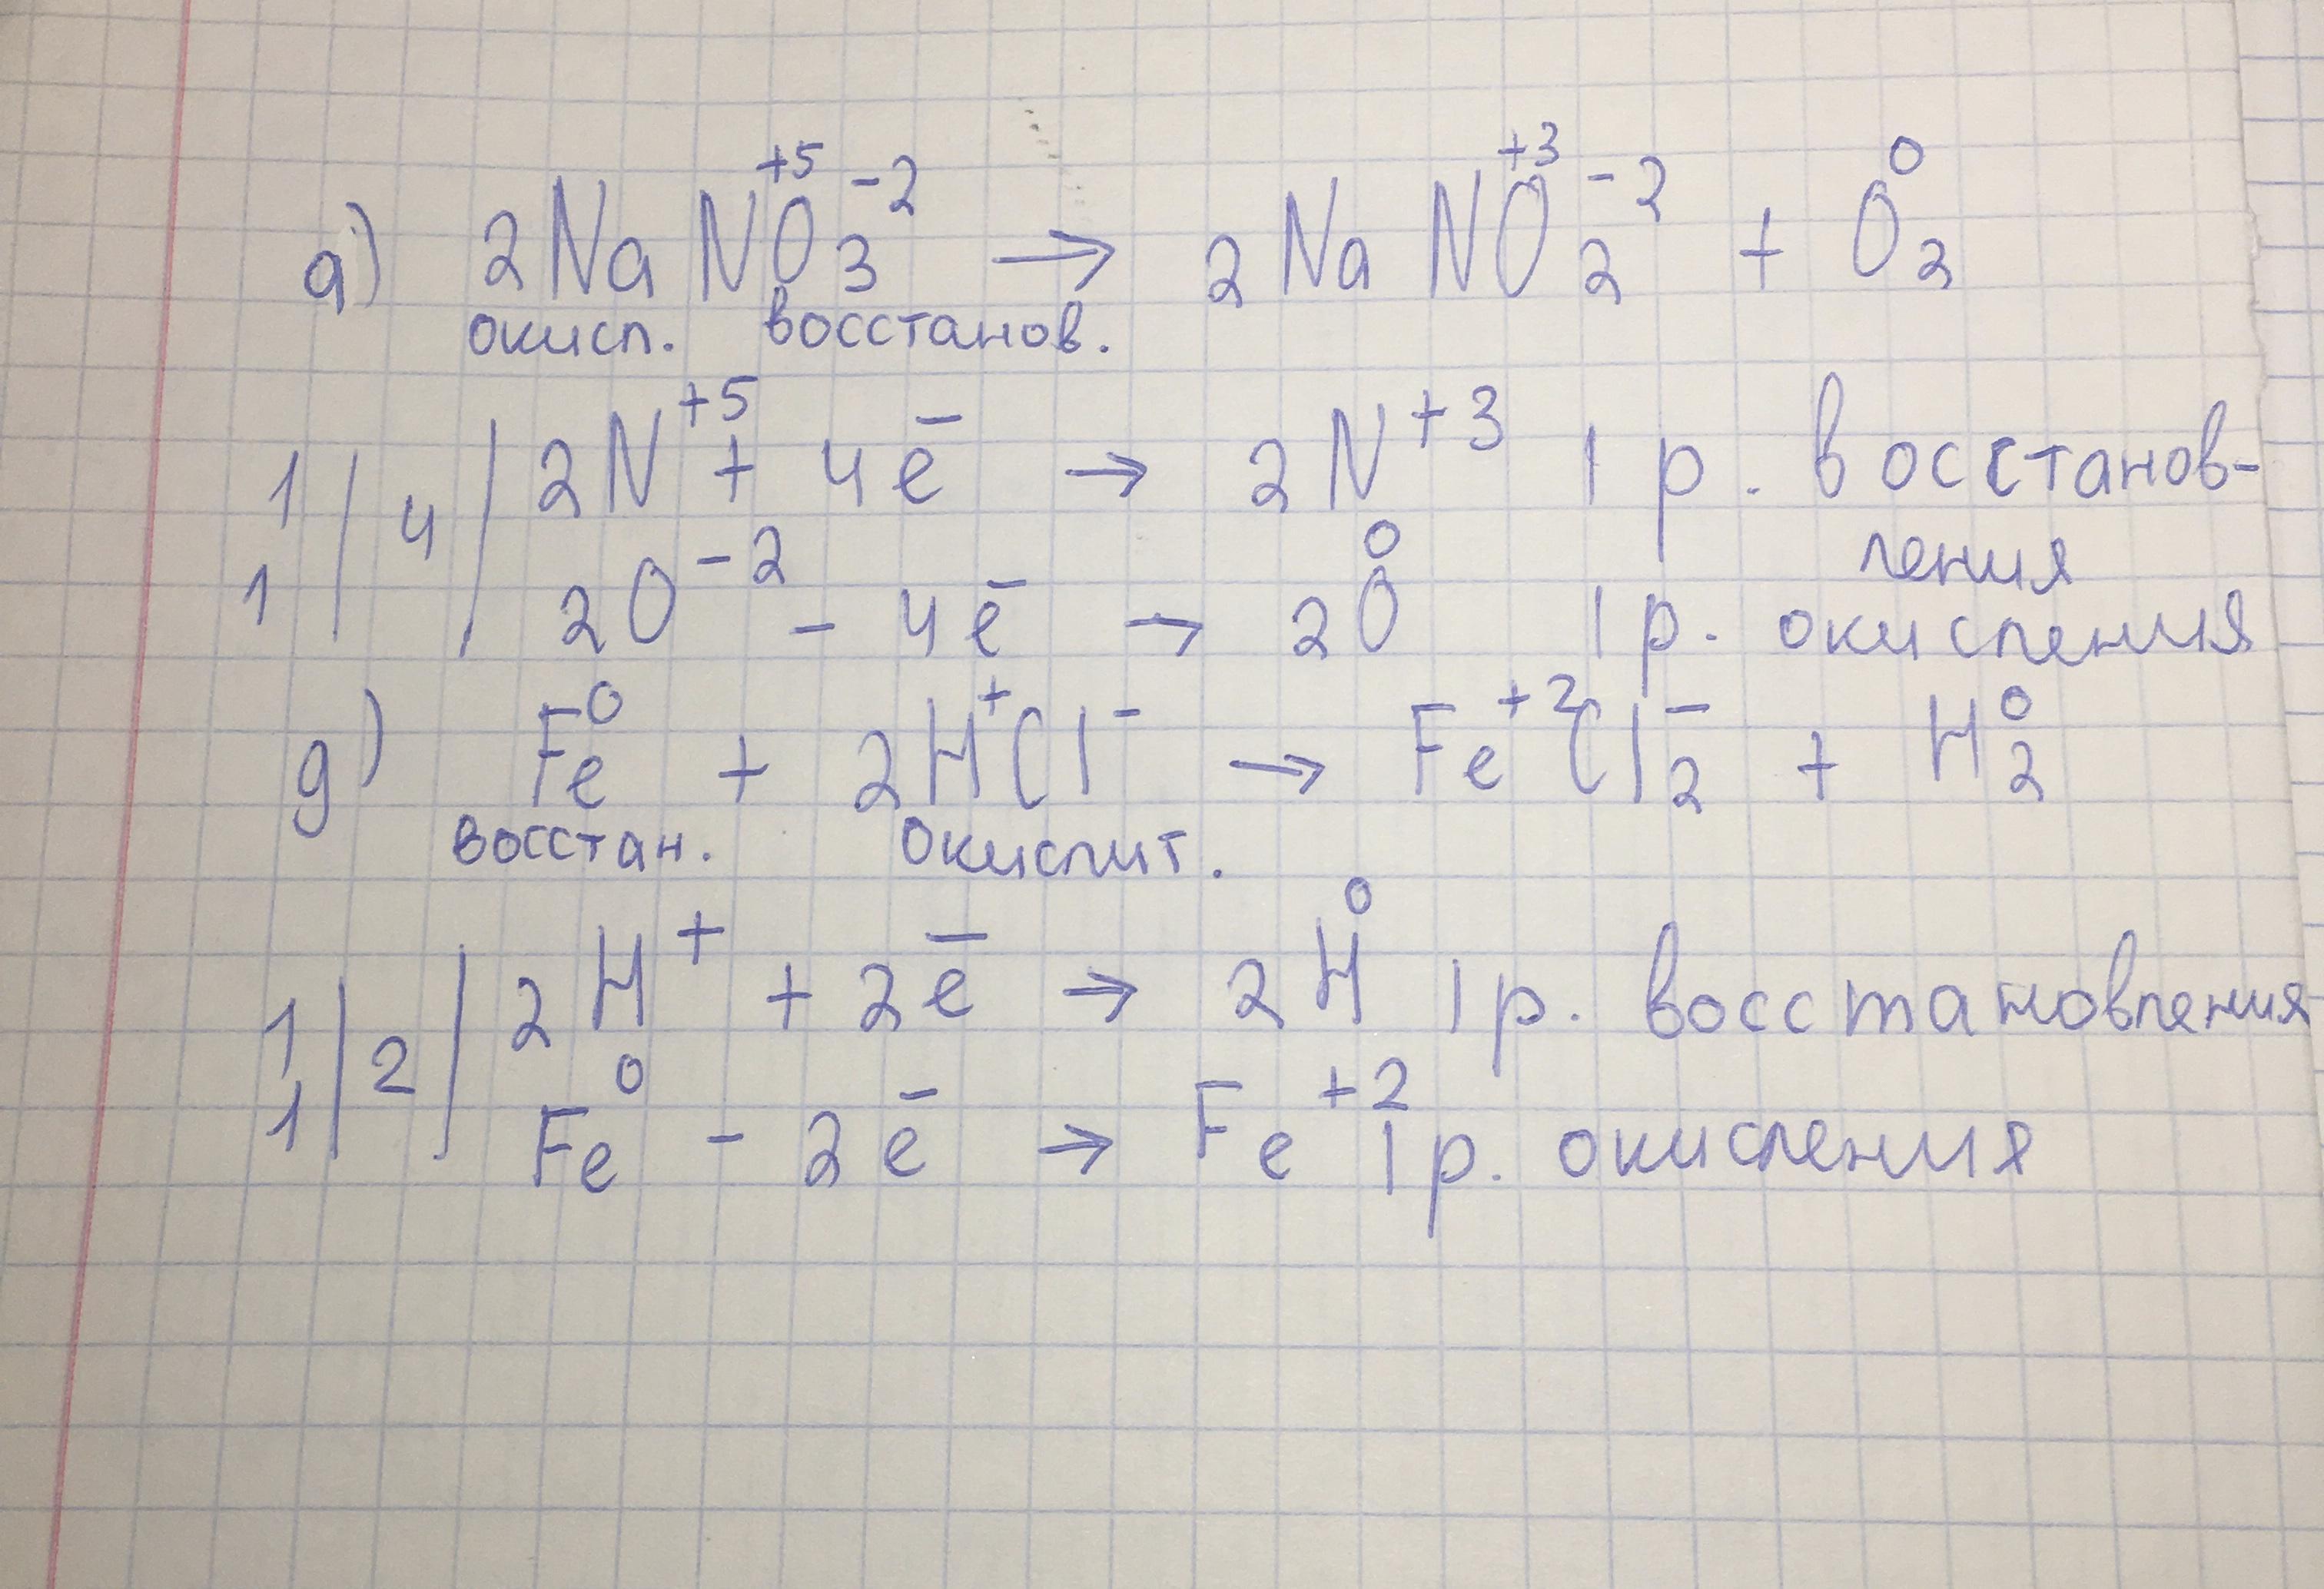 а) 2NaN⁺⁵O₃⁻² → 2NaN⁺³O₂⁻² + O₂⁰
окисл. восстанов.
1 | 4 | 2N⁺⁵ + 4e̅ → 2N⁺³ | р. восстанов-
ления
1 | | 2O⁻² - 4e̅ → 2O⁰ | р. окисления
д) Fe⁰ + 2H⁺Cl⁻ → Fe⁺²Cl₂⁻ + H₂⁰
восстан. окислит.
1 | 2 | 2H⁺ + 2e̅ → 2H⁰ | р. восстановления
1 | | Fe⁰ - 2e̅ → Fe⁺² | р. окисления